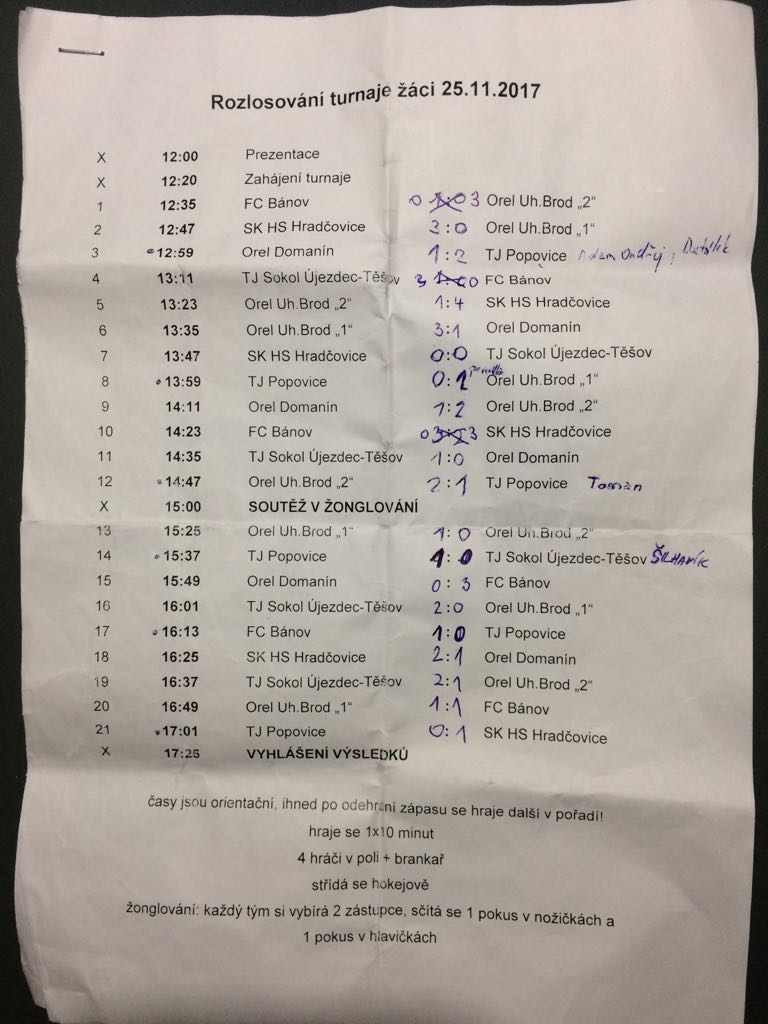 Rozlosování turnaje žáci 25.11.2017
X 12:00 Prezentace
X 12:20 Zahájení turnaje
1 12:35 FC Bánov 0 : 3 Orel Uh.Brod „2"
2 12:47 SK HS Hradčovice 3:0 Orel Uh.Brod „1"
3 12:59 Orel Domanín 1:2 TJ Popovice Adam Ondřej,
4 13:11 TJ Sokol Újezdec-Těšov 3 : 0 FC Bánov
5 13:23 Orel Uh.Brod „2" 1:4 SK HS Hradčovice
6 13:35 Orel Uh.Brod „1" 3:1 Orel Domanín
7 13:47 SK HS Hradčovice 0:0 TJ Sokol Újezdec-Těšov
8 13:59 TJ Popovice 0:1 Orel Uh.Brod „1"
9 14:11 Orel Domanín 1:2 Orel Uh.Brod „2"
10 14:23 FC Bánov 0 : 3 SK HS Hradčovice
11 14:35 TJ Sokol Újezdec-Těšov 1:0 Orel Domanín
12 14:47 Orel Uh.Brod „2" 2:1 TJ Popovice Toman
X 15:00 SOUTĚŽ V ŽONGLOVÁNÍ
13 15:25 Orel Uh.Brod „1" 1:0 Orel Uh.Brod „2"
14 15:37 TJ Popovice 1:0 TJ Sokol Újezdec-Těšov
15 15:49 Orel Domanín 0:3 FC Bánov
16 16:01 TJ Sokol Újezdec-Těšov 2:0 Orel Uh.Brod „1"
17 16:13 FC Bánov 1:0 TJ Popovice
18 16:25 SK HS Hradčovice 2:1 Orel Domanín
19 16:37 TJ Sokol Újezdec-Těšov 2:1 Orel Uh.Brod „2"
20 16:49 Orel Uh.Brod „1" 1:1 FC Bánov
21 17:01 TJ Popovice 0:1 SK HS Hradčovice
X 17:25 VYHLÁŠENÍ VÝSLEDKŮ
časy jsou orientační, ihned po odehrání zápasu se hraje další v pořadí!
hraje se 1x10 minut
4 hráči v poli + brankař
střídá se hokejově
žonglování: každý tým si vybírá 2 zástupce, sčítá se 1 pokus v nožičkách a
1 pokus v hlavičkách